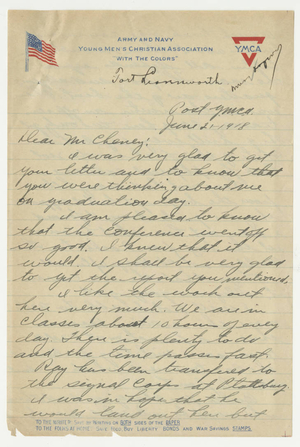 ARMY AND NAVY
YOUNG MEN'S CHRISTIAN ASSOCIATION
"WITH THE COLORS"
YMCA
Fort Leavenworth
Post Ymca
June 2-1918
Dear Mr Cheney:
I was very glad to get
your letter and to know that
you were thinking about me
on graduation day.
I am pleased to know
that the conference went off
so good. I knew that it
would. I shall be very glad
to get the report you mentioned.
I like the work out
here very much. We are in
classes about 10 hours of every
day. There is plenty to do
and the time passes fast.
Ray has been transfered to
the signal Corps at
I was in hope that he
would land out here but
TO THE WRITER: SAVE BY WRITING ON BOTH SIDES OF THE PAPER
TO THE FOLKS AT HOME: SAVE FOOD BUY LIBERTY BONDS AND WAR SAVINGS STAMPS.